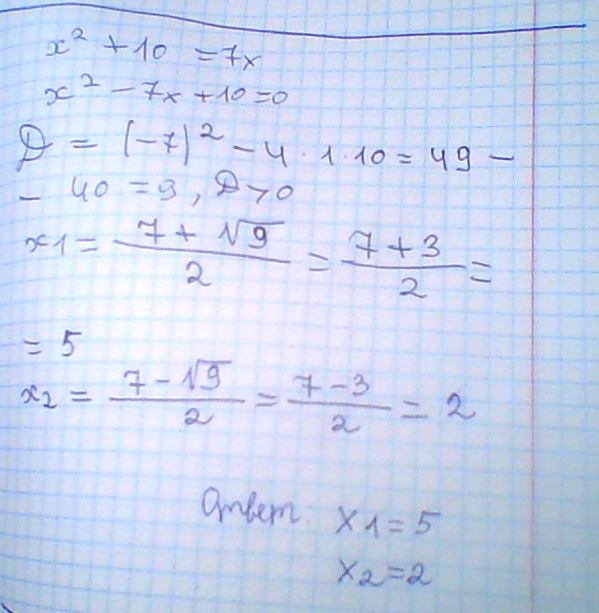 x² + 10 = 7x
x² - 7x + 10 = 0
D = (-7)² - 4 · 1 · 10 = 49 -
- 40 = 9, D > 0
x1 = (7 + √9)/2 = (7 + 3)/2 =
= 5
x2 = (7 - √9)/2 = (7 - 3)/2 = 2
Ответ: x1 = 5
x2 = 2